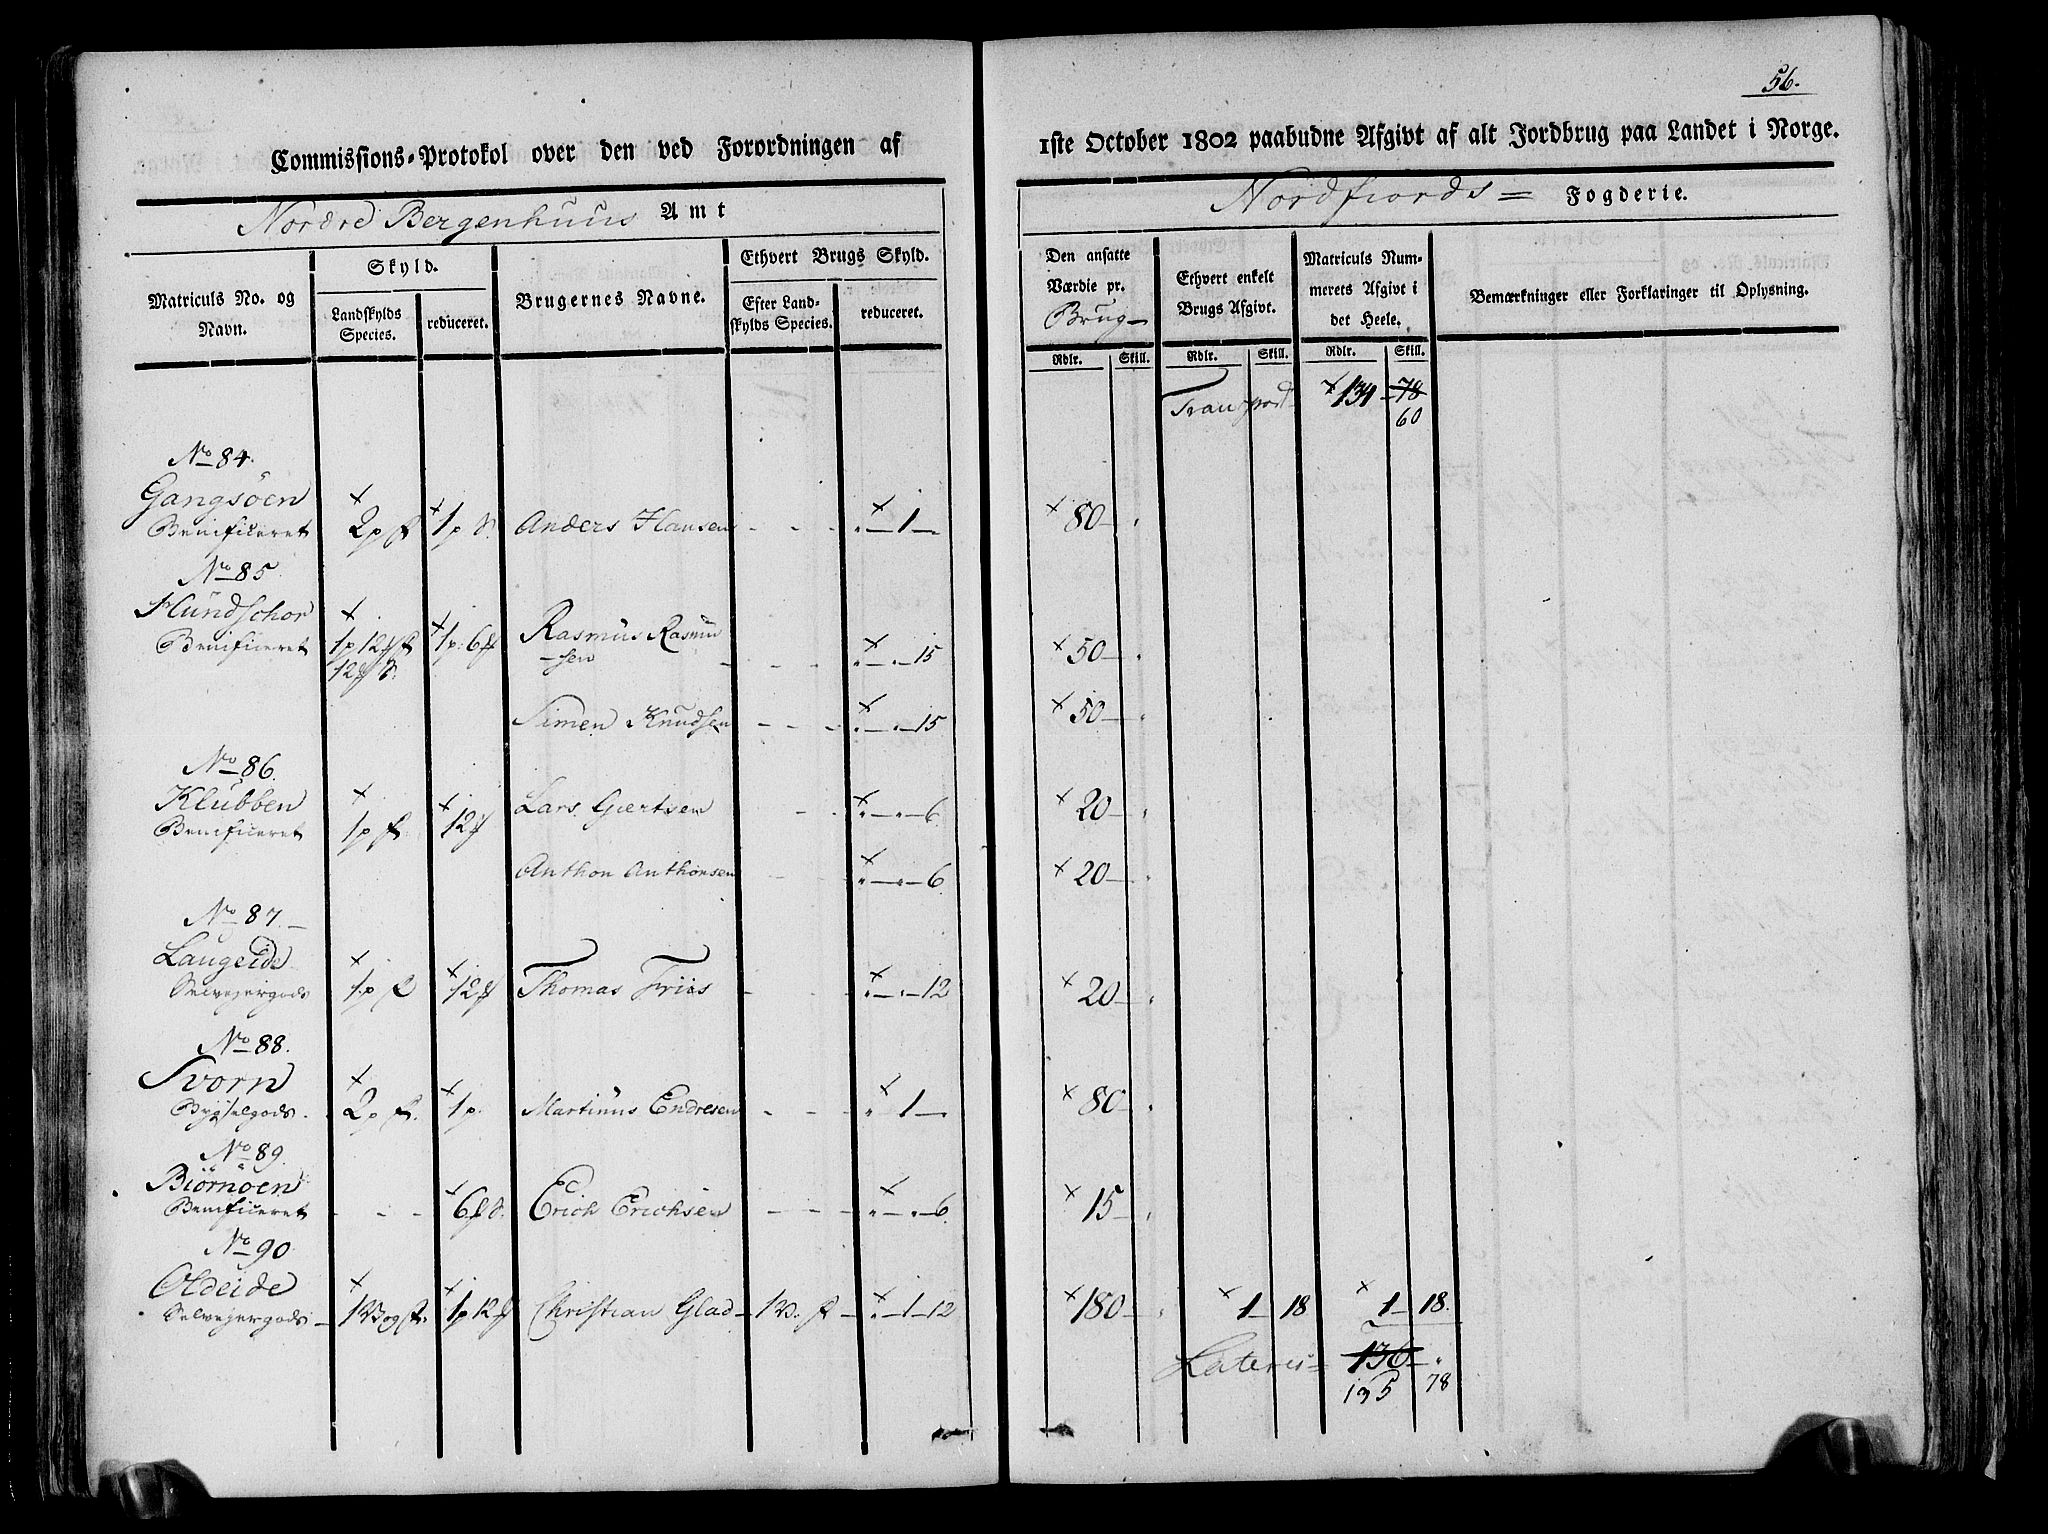 56.
Commissions-Protokol over den ved Forordningen af 1ste October 1802 paabudne Afgivt af alt Jordbrug paa Landet i Norge.
Nordre Bergenhuus Amt
Nordfiords = Fogderie.
Matriculs No. og Navn.
Skyld.
Landskylds Species.
reduceret.
Brugernes Navne.
Ethvert Brugs Skyld.
Efter Landskylds Species.
reduceret.
Den ansatte Værdie pr. Brug
Ethvert enkelt Brugs Afgivt.
Matriculs Nummerets Afgivt i det Heele.
Bemærkninger eller Forklaringer til Oplysning.
Rdlr. Skill. Rdlr. Skill. Rdlr. Skill.
Transport 134 78
60
No 84.
Gangsöen
Benificeret 2 p f 1 p Anders Hansen - - - 1 - 80 -
No 85
Hundschor
Benificeret 1 p 12 1 p. 6 Rasmus Rasmus
12 -sen - - - 15 50 -
Simen Knudsen - - - 15 50 -
No 86.
Klubben Lars Giertsen - - 6 20 -
Benificeret 1 p f. 12
Anthon Anthonsen - - 6. 20 -
No 87. -
Laugeide
Selvejergods 1 p 12 Thomas Friis - - - 12 20 -
No 88.
Svorn
Bygselgods. 2 p f. 1 p. Martinus Endresen - - - 1 - 80 -
No 89.
Biörnöen
Benificeret - - - 6 Erich Erichsen - - - 6. 15 -
No 90
Oldeide
Selvejergods - 1 Vog f. 1 p 12 Christian Glad - 1 V. f - 1 - 12 180 - 1 18 1 - 18.
Lateris = 136 -
135 78